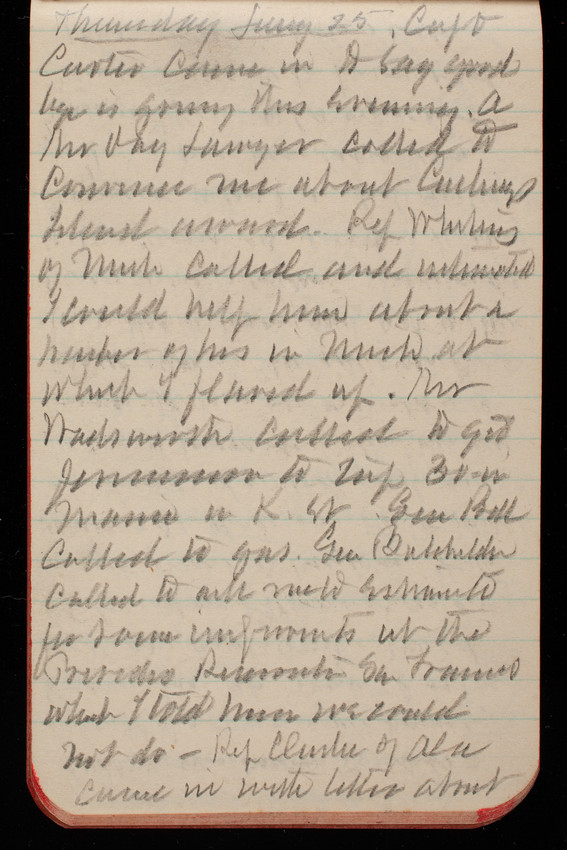 Thursday Jany 25. Capt
Carter came in to say good
by is going this evening. A
Mr Day Lawyer called to
convince me about Cushings
Island award. Rep Whiting
of Mich called and intimated
I could help him about a
harbor of his in Mich at
which I flared up. Mr
Wadsworth called to get
permission to 30 in
in K. St. Gen Bell
called to gas. Gen Batchelder
called to ask would estimate
for some improvements at the
Presidio Reservation San Francisco
which I told him we could
not do - Rep Clarke of Ala
came in with letter about